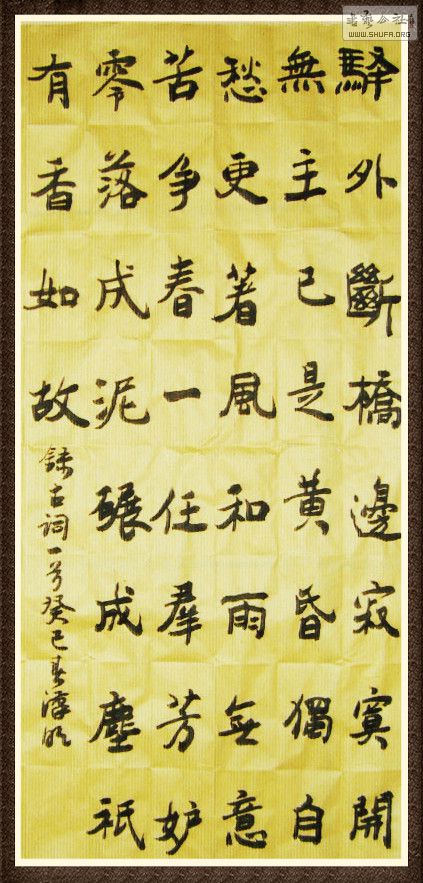 書藝公社
WWW.SHUFA.ORG
驛外斷橋邊寂寞開
無主已是黃昏獨自
愁更著風和雨無意
苦争春一任羣芳妒
零落成泥碾成塵祇
有香如故
錄古詞一首癸巳春